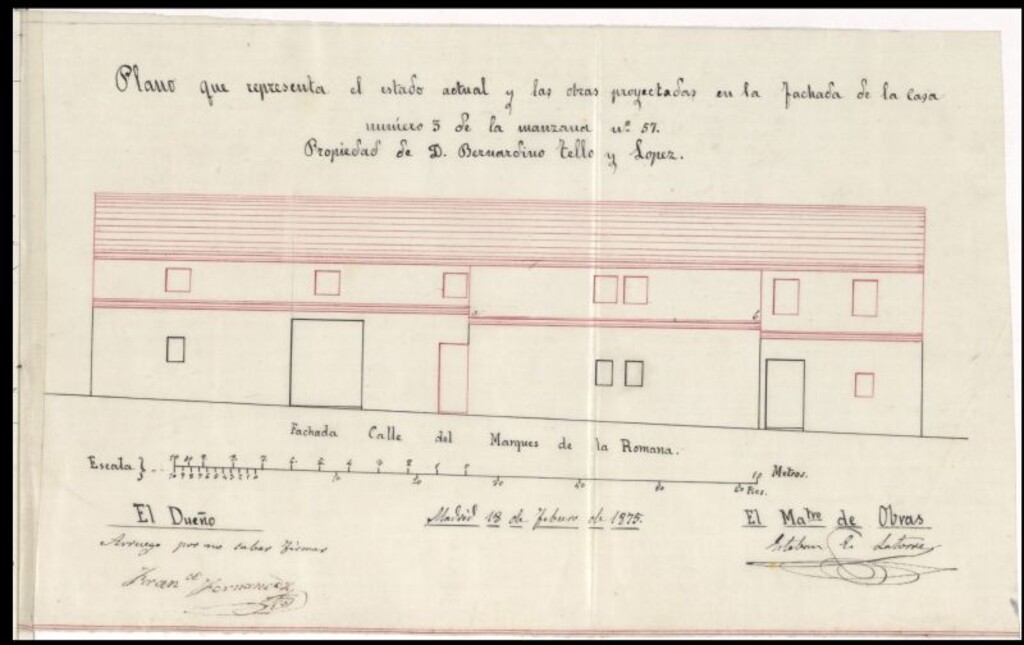 Plano que representa el estado actual y las obras proyectadas en la fachada de la casa
numero 3 de la manzana nº 57.
Propiedad de D. Bernardino Tello y Lopez.
Fachada Calle del Marques de la Romana.
Escala
10 20 30 40 50 60 Pies.
Metros.
El Dueño
Madrid 18 de febrero de 1875.
El Matre de Obras
Arruego por no saber firmar
Esteban Latorre
Franco Fernandez